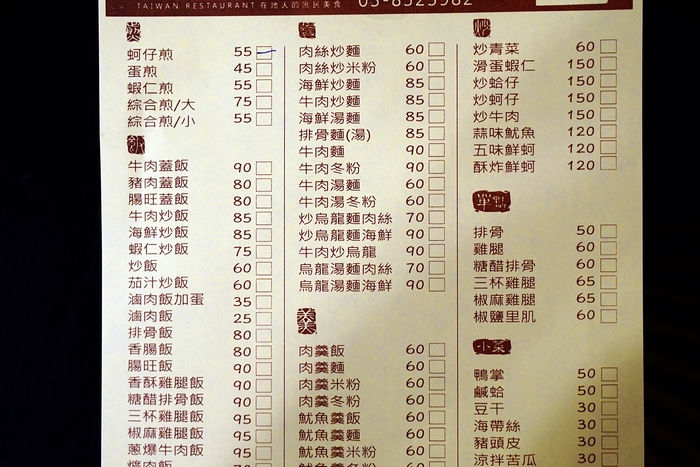 TAIWAN RESTAURANT 在地人的庶民美食
煎
蚵仔煎 55
蛋煎 45
蝦仁煎 55
綜合煎/大 75
綜合煎/小 55
飯
牛肉蓋飯 90
豬肉蓋飯 80
腸旺蓋飯 80
牛肉炒飯 85
海鮮炒飯 85
蝦仁炒飯 85
炒飯 60
茄汁炒飯 60
滷肉飯加蛋 35
滷肉飯 25
排骨飯 80
香腸飯 80
腸旺飯 90
香酥雞腿飯 90
糖醋排骨飯 90
三杯雞腿飯 95
椒麻雞腿飯 95
蔥爆牛肉飯 95
麵
肉絲炒麵 60
肉絲炒米粉 60
海鮮炒麵 85
牛肉炒麵 85
海鮮湯麵 85
排骨麵(湯) 85
牛肉麵 90
牛肉冬粉 90
牛肉湯麵 60
牛肉湯冬粉 60
炒烏龍麵肉絲 70
炒烏龍麵海鮮 90
牛肉炒烏龍 90
烏龍湯麵肉絲 70
烏龍湯麵海鮮 90
羹
肉羹飯 60
肉羹麵 60
肉羹米粉 60
肉羹冬粉 60
魷魚羹飯 60
魷魚羹麵 60
魷魚羹米粉 60
魷魚羹冬粉 60
炒
炒青菜 60
滑蛋蝦仁 150
炒蛤仔 150
炒蚵仔 150
炒牛肉 150
蒜味魷魚 120
五味鮮蚵 120
酥炸鮮蚵 120
單點
排骨 50
雞腿 60
糖醋排骨 60
三杯雞腿 65
椒麻雞腿 65
椒鹽里肌 60
小菜
鴨掌 50
鹹蛤 50
豆干 30
海帶絲 30
豬頭皮 30
涼拌苦瓜 30